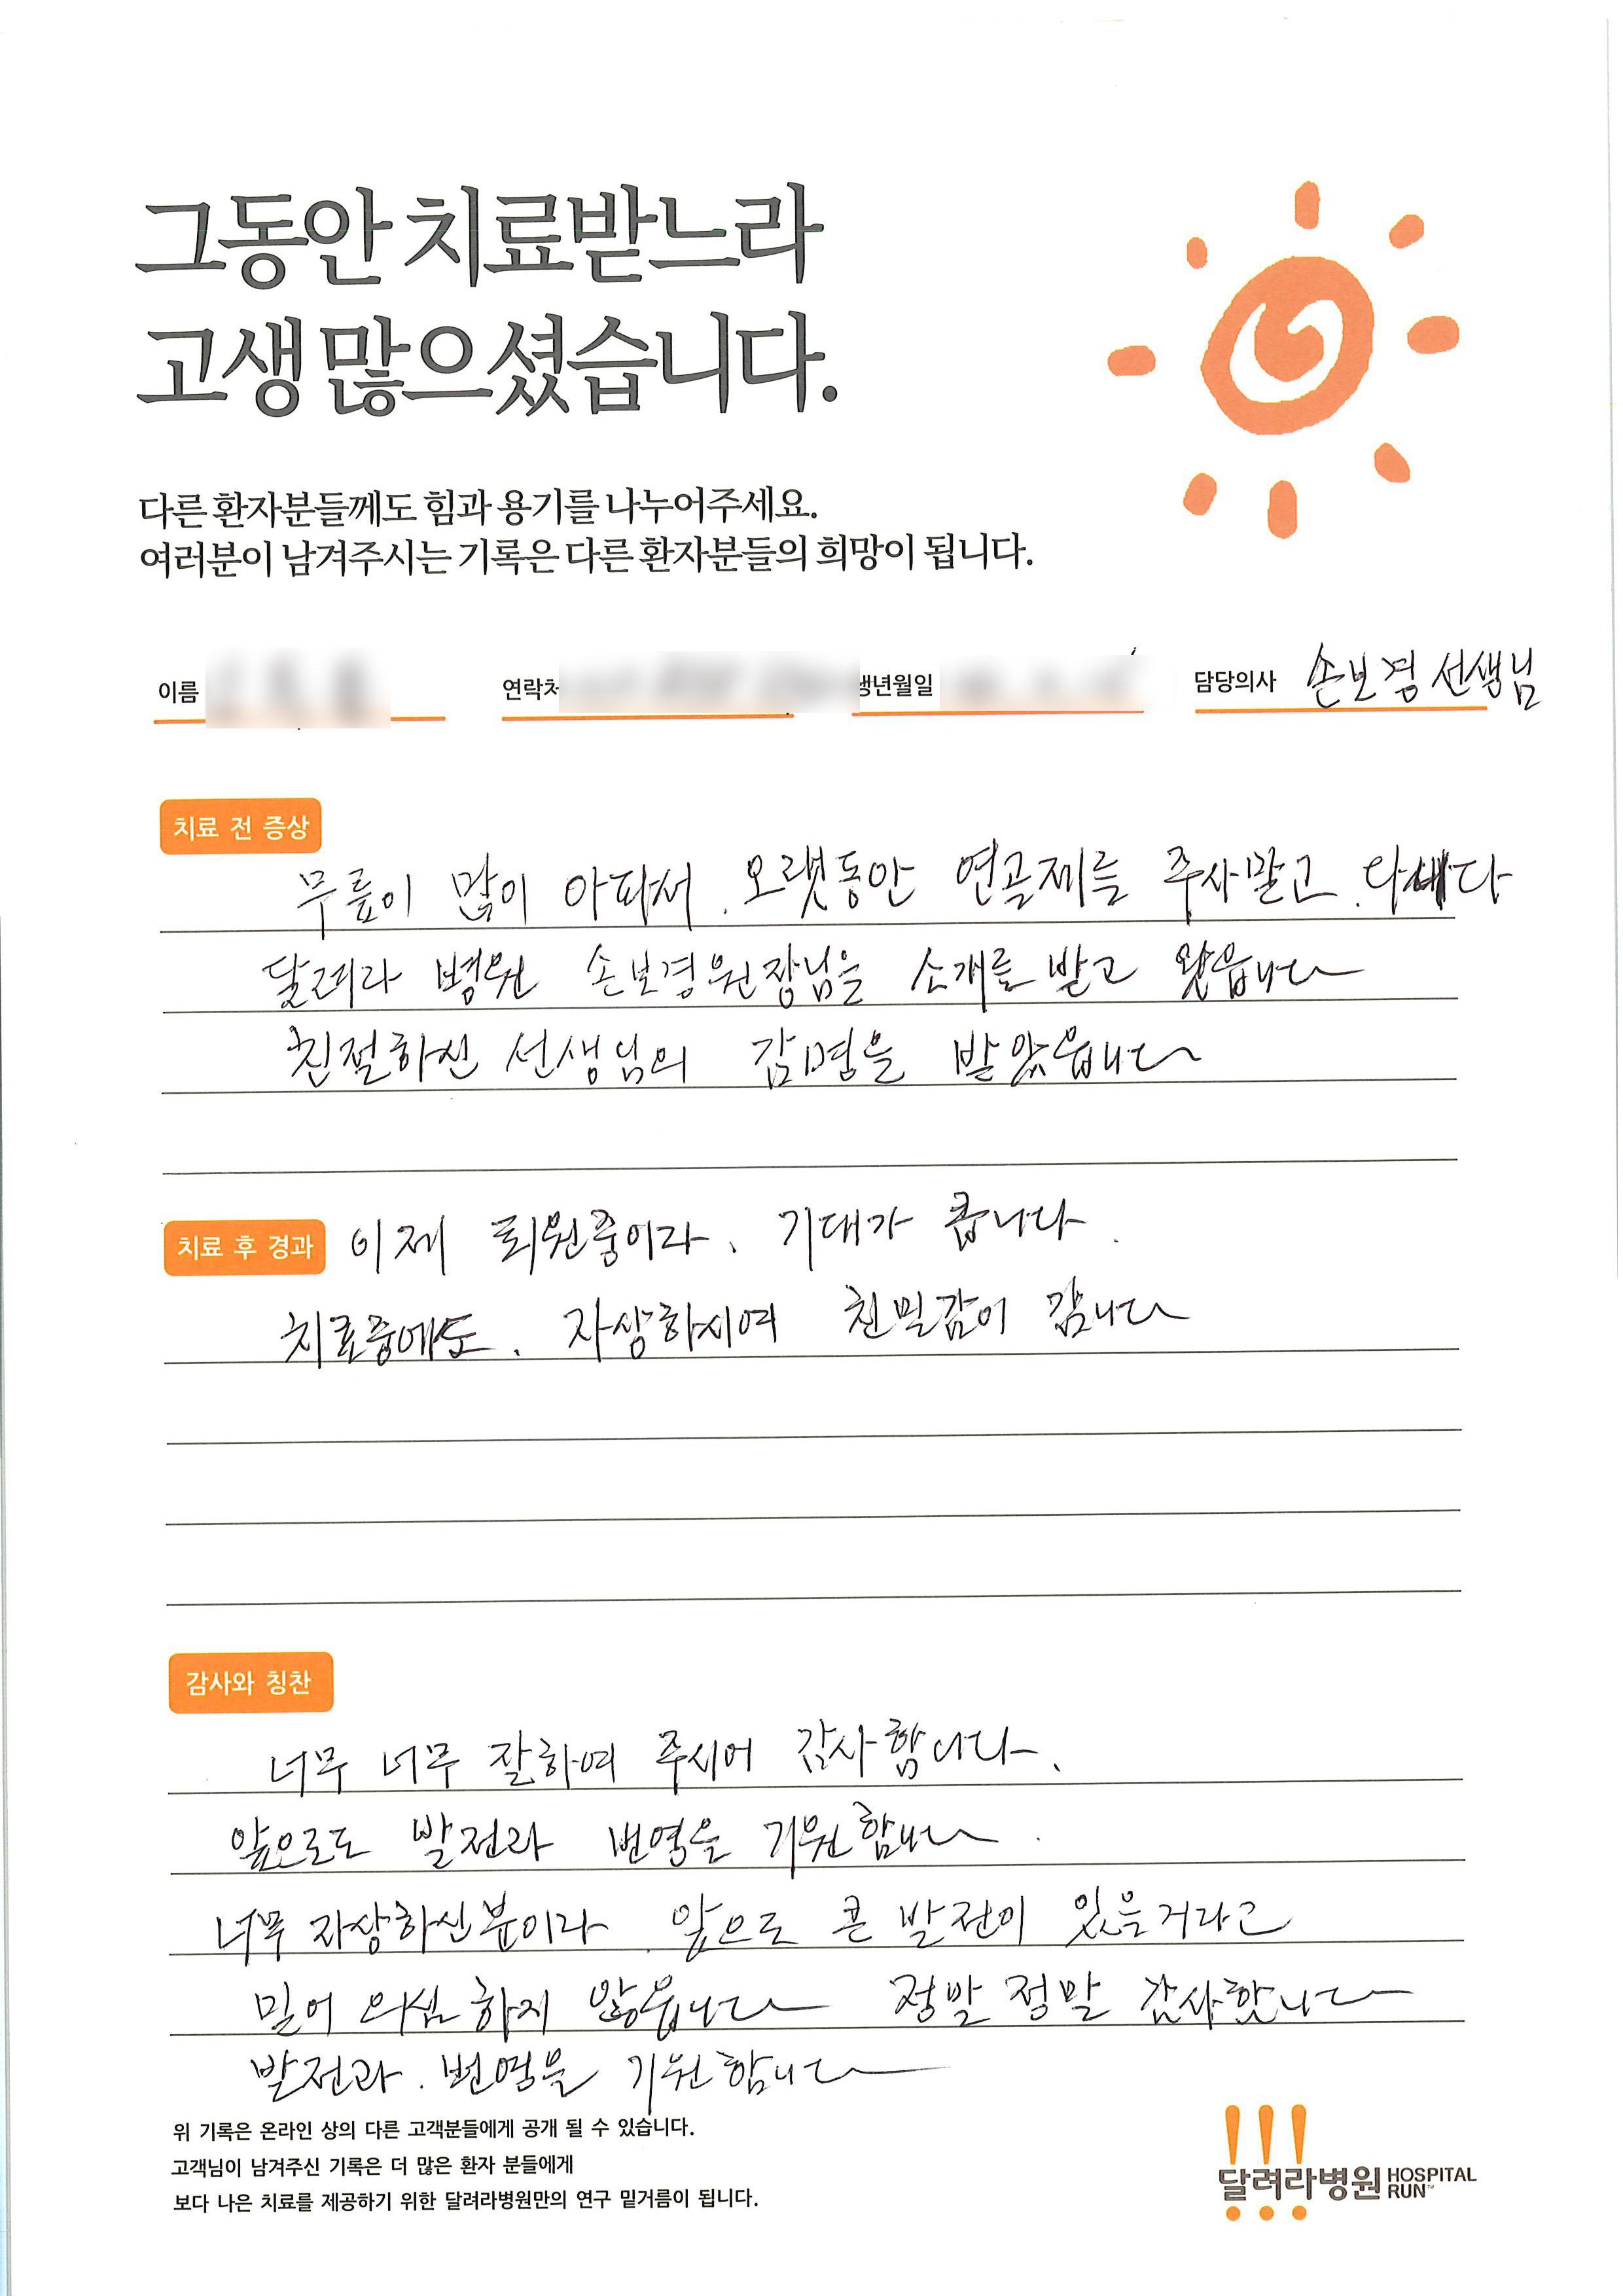 그동안 치료받느라
고생 많으셨습니다.
다른 환자분들께도 힘과 용기를 나누어주세요.
여러분이 남겨주시는 기록은 다른 환자분들의 희망이 됩니다.
이름 연락처 생년월일 담당의사 손보경 선생님
치료 전 증상
무릎이 많이 아파서. 오랫동안 연골제를 주사맞고.
달려라 병원 손보경원장님을 소개를 받고 왔읍니다
친절하신 선생님의 감명을 받았읍니다
치료 후 경과 이제 퇴원중이라. 기대가 큽니다.
치료중에도. 자상하시여 친밀감이 갑니다
감사와 칭찬
너무 너무 잘하여 주시어 감사합니다.
앞으로도 발전과 번영을 기원합니다.
너무 자상하신분이라. 앞으로 큰 발전이 있을거라고
믿어 의심하지 않읍니다 정말 정말 감사핫니다
발전과. 번영을 기원합니다
위 기록은 온라인 상의 다른 고객분들에게 공개 될 수 있습니다.
고객님이 남겨주신 기록은 더 많은 환자 분들에게
보다 나은 치료를 제공하기 위한 달려라병원만의 연구 밑거름이 됩니다.
달려라병원 HOSPITAL RUN™